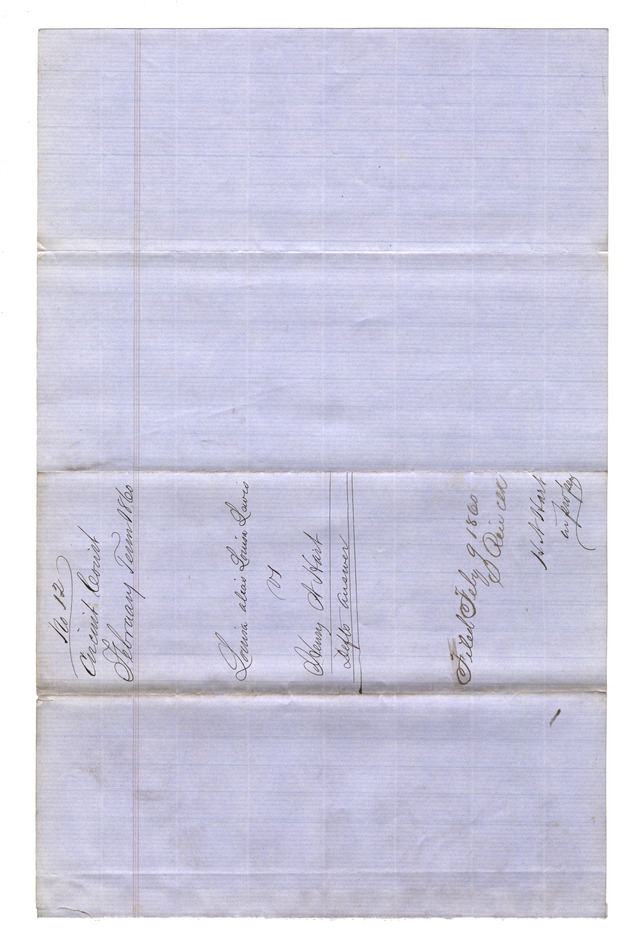 No 12
Circuit Court
February Term 1860
Louisa alias Louisa Lewis
vs
Henry N Hart
Defts answer
Filed Feby 9 1860
H N Hart
in pro per